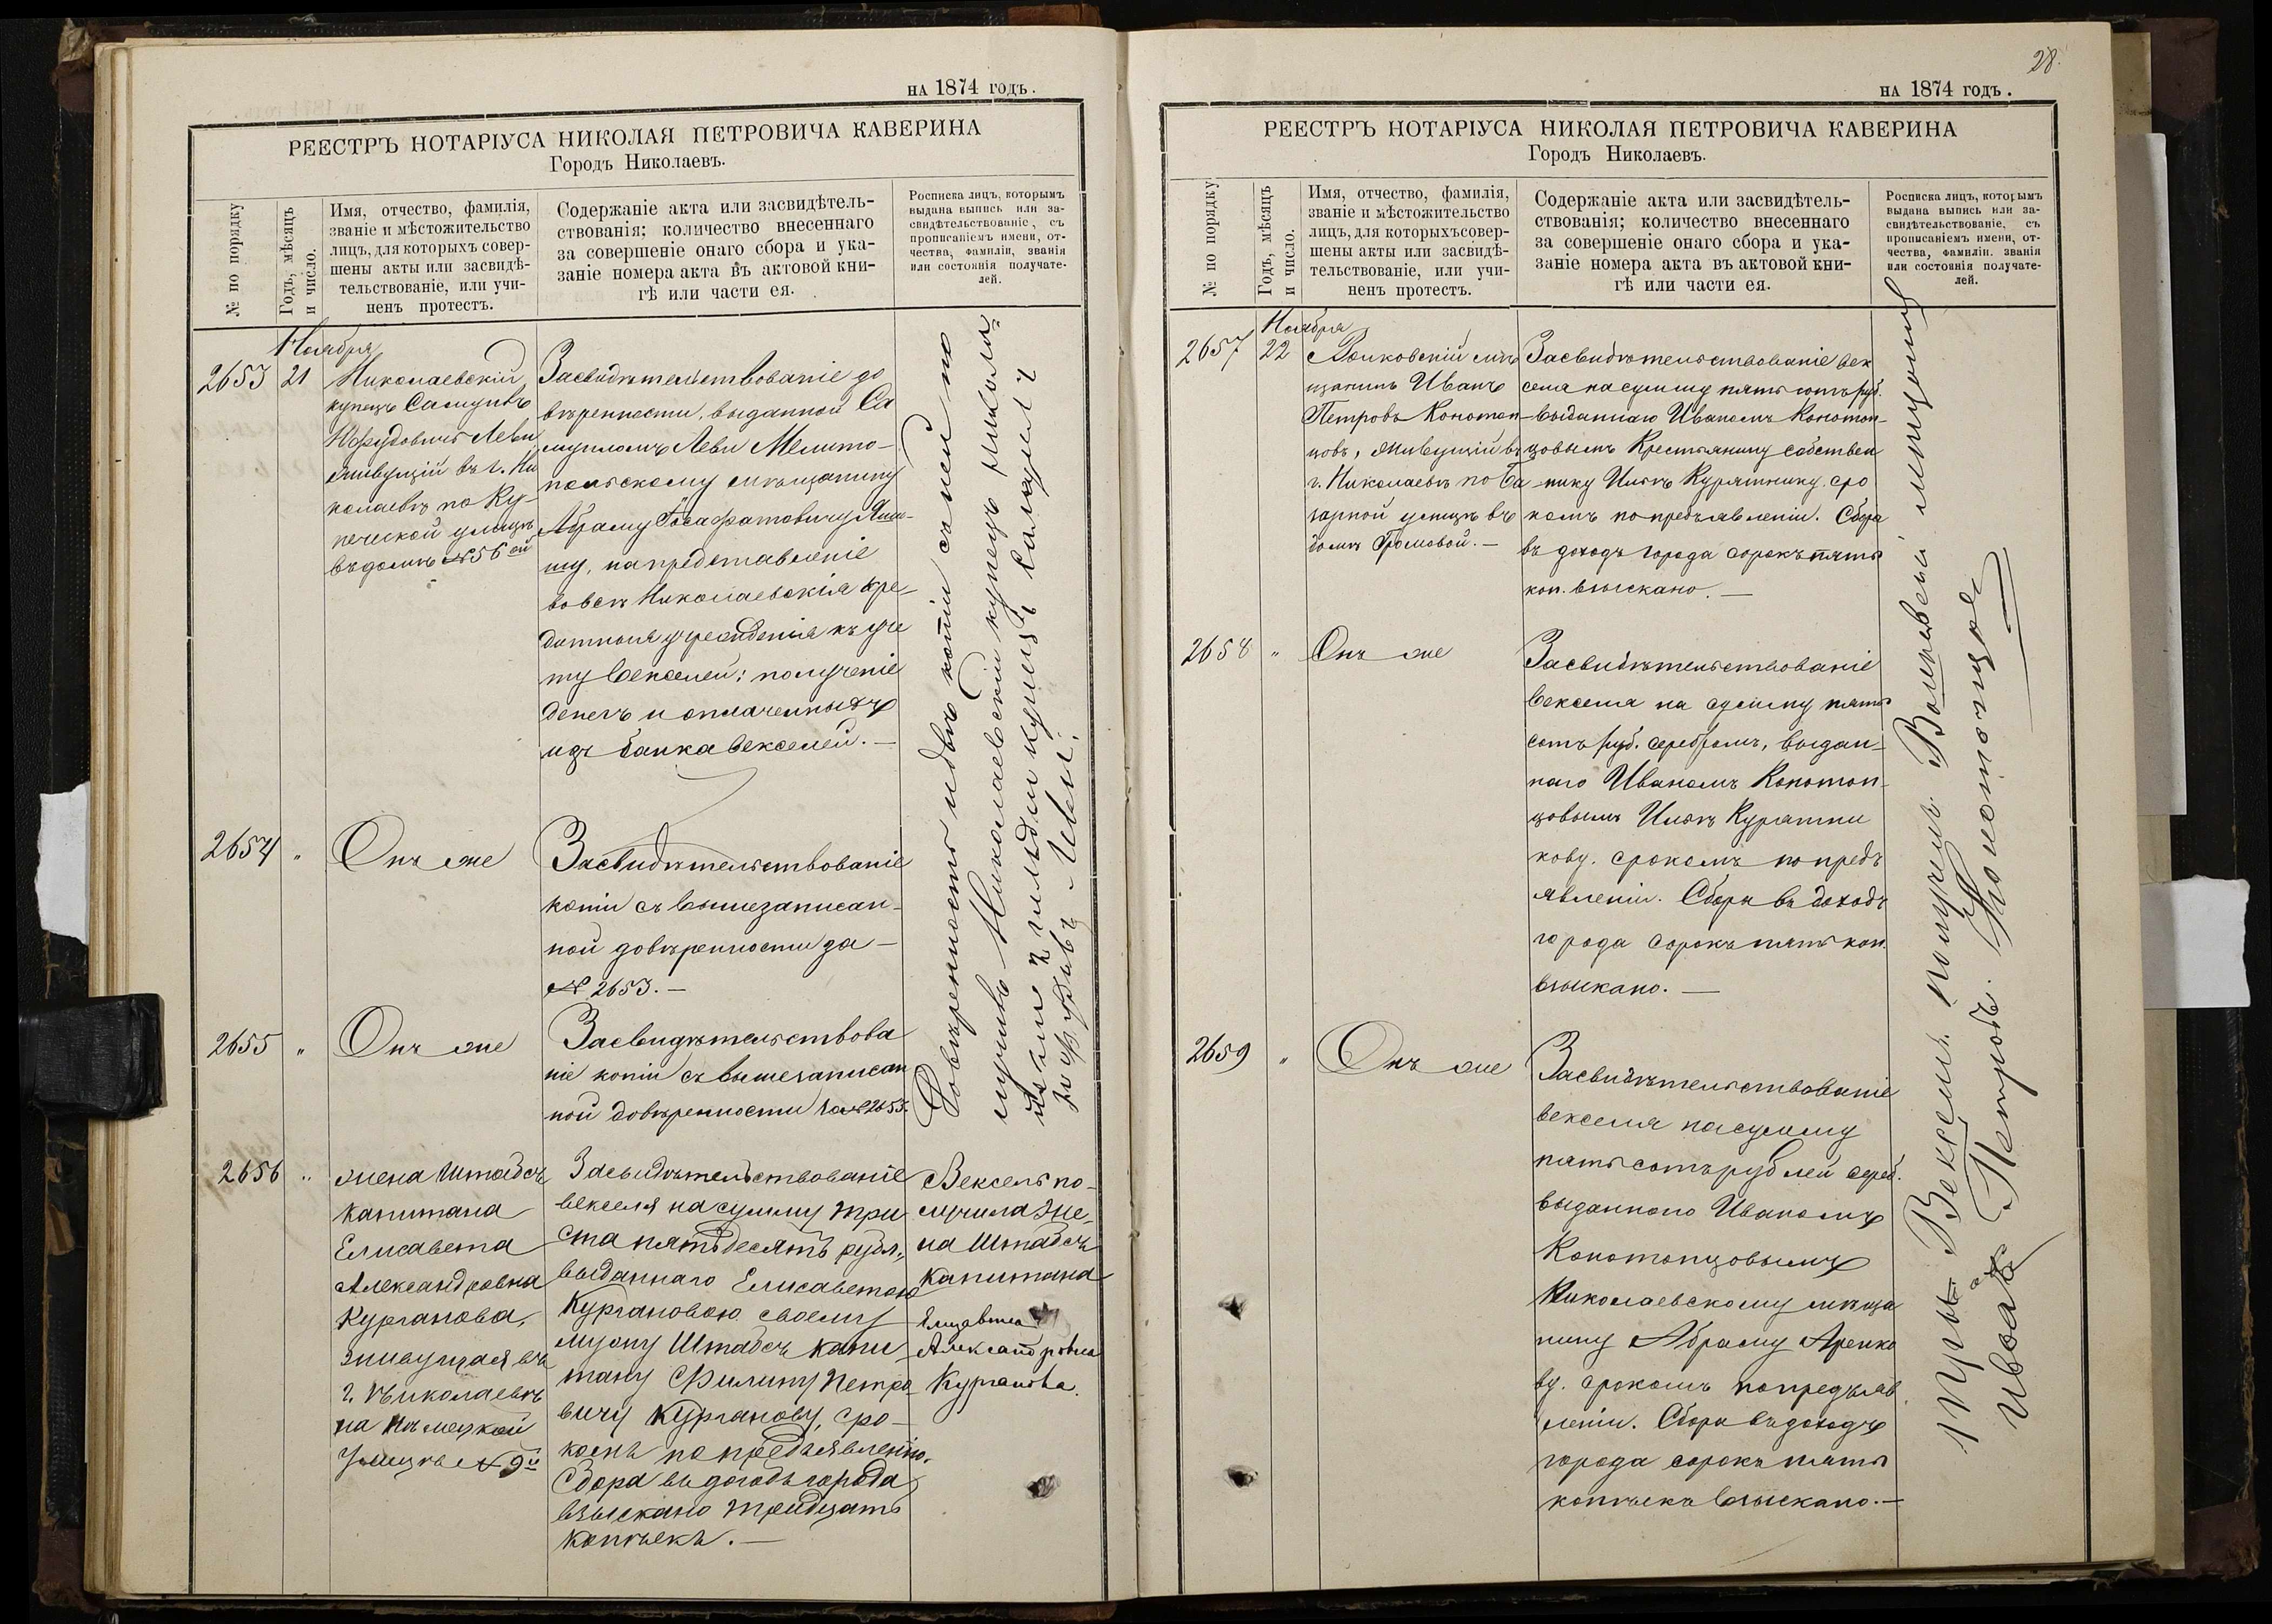 на 1874 годъ.
РЕЕСТРЪ НОТАРІУСА НИКОЛАЯ ПЕТРОВИЧА КАВЕРИНА
Городъ Николаевъ.
№ по порядку
Годъ, мѣсяцъ
и число.
Имя, отчество, фамилія,
званіе и мѣстожительство
лицъ, для которыхъ совер-
шены акты или засвидѣ-
тельствованіе, или учи-
ненъ протестъ.
Содержаніе акта или засвидѣтель-
ствованія; количество внесеннаго
за совершеніе онаго сбора и ука-
заніе номера акта въ актовой кни-
гѣ или части ея.
Росписка лицъ, которымъ
выдана выпись или за-
свидѣтельствованіе, съ
прописаніемъ имени, от-
чества, фамиліи, званія
или состоянія получате-
лей.
Ноября
2653
21
Николаевскій
купецъ Самуилъ
Леви
живущій въ г. Ни
колаевѣ по Ку-
печеской улицѣ
въ домѣ № 56 ой
Засвидѣтельствованіе до
вѣренности, выданной Са
муиломъ Леви Мелито-
польскому мѣщанину
Абраму
му, на представленіе
во всѣ Николаевскія кре-
дитныя учрежденія къ уче
ту векселей; полученіе
денегъ и оплаченныхъ
изъ банка векселей. —
2654
"
Онъ же
Засвидѣтельствованіе
копіи съ вышезаписан-
ной довѣренности за —
№ 2653. —
2655
"
Онъ же
Засвидѣтельствова
ніе копіи съ вышезаписан
ной довѣренности за № 2653.
Довѣренность и двѣ копіи съ ней по
лучилъ Николаевскій купецъ
Самуилъ
Леви.
2656
"
жена Штабсъ
капитана
Елисавета
Александровна
Курганова,
живущая въ
г. Николаевѣ
на Нѣмецкой
Улицѣ № 9й
Засвидѣтельствованіе
векселя на сумму три
ста пятьдесятъ рубл.,
выданнаго Елисаветою
Кургановою своему
мужу Штабсъ капи
тану Филипу Петро
вичу Курганову, сро-
комъ по предъявленію.
Сбора въ доходъ города
взыскано тридцать
копѣекъ. —
Вексель по-
лучила Же-
на Штабсъ
Капитана
Елизавета
Александровна
Курганова.
28.
на 1874 годъ.
РЕЕСТРЪ НОТАРІУСА НИКОЛАЯ ПЕТРОВИЧА КАВЕРИНА
Городъ Николаевъ.
№ по порядку
Годъ, мѣсяцъ
и число.
Имя, отчество, фамилія,
званіе и мѣстожительство
лицъ, для которыхъ совер-
шены акты или засвидѣ-
тельствованіе, или учи-
ненъ протестъ.
Содержаніе акта или засвидѣтель-
ствованія; количество внесеннаго
за совершеніе онаго сбора и ука-
заніе номера акта въ актовой кни-
гѣ или части ея.
Росписка лицъ, которымъ
выдана выпись или за-
свидѣтельствованіе, съ
прописаніемъ имени, от-
чества, фамиліи, званія
или состоянія получате-
лей.
Ноября
2657
22
Волковскій мѣ
щанинъ Иванъ
Петровъ Конотоп-
цовъ, живущій въ
г. Николаевѣ по Ба
зарной улицѣ въ
домѣ Громовой. —
Засвидѣтельствованіе век
селя на сумму пять сотъ руб.
выданнаго Иваномъ Конотоп-
цовымъ Крестьянину собствен
нику Ильѣ Курятнику, сро
комъ по предъявленіи. Сбора
въ доходъ города сорокъ пять
коп. взыскано. —
2658
"
Онъ же
Засвидѣтельствованіе
векселя на сумму пять
сотъ руб. серебромъ, выдан-
наго Иваномъ Конотоп-
цовымъ Ильѣ Курятни
кову, срокомъ по предъ
явленіи. Сбора въ доходъ
города сорокъ пять коп.
взыскано. —
2659
"
Онъ же
Засвидѣтельствованіе
векселя на сумму
пять сотъ рублей сереб.
выданного Иваномъ
Конотопцовымъ
Николаевскому мѣща
нину Абраму Аренко
ву, срокомъ по предъяв
леніи. Сбора въ доходъ
города сорокъ пять
копѣекъ взыскано. —
Три Векселя получилъ мищанинъ
Иванъ Петровъ Конотопцов